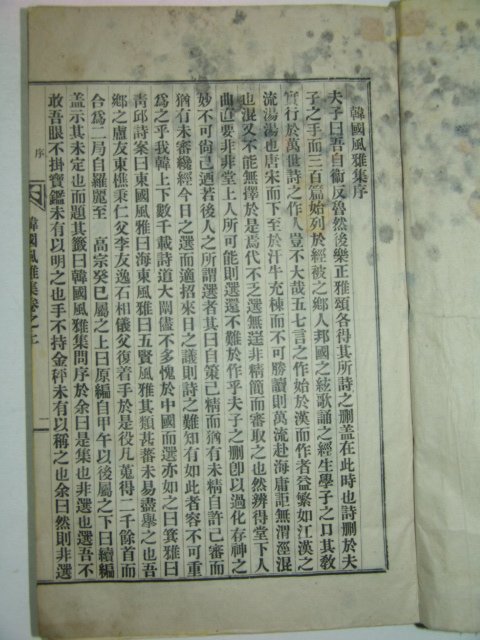 韓國風雅集序
夫子曰吾自衛反魯然後樂正雅頌各得其所詩之刪盖在此時也詩刪於夫
子之手而三百篇始列於經被之鄉人邦國之絃歌誦之經生學子之口其敎
實行於萬世詩之作人豈不大哉五七言之作始於漢而作者益繁如江漢之
流湯湯也唐宋而下至於汗牛充棟而不可勝讀則萬流赴海庸詎無渭涇混
也混又不能無擇於是焉代不乏選無選非精簡而審取之也然辨得堂下人
曲直要非非堂上人所可能則選還不難於作乎夫子之刪卽以過化存神之
妙不可尙已迺若後人之所謂選者其曰自策已精而猶有未精自許已審而
猶有未審纔經今日之選而適招來日之議則詩之難知有如此者容不可重
爲之乎我韓上下數千載詩道大闡儘不多愧於中國而選亦如之曰箕雅曰
靑邱詩案曰東國風雅曰海東風雅曰五賢風雅其類甚蕃未易盡擧之也吾
鄉之盧友東樵秉仁父李友逸石相儀父復着手於是役凡蒐得二千餘首而
合爲二局自羅麗至 高宗癸巳屬之上曰原編自甲午以後屬之下曰續編
盖示其未定也而題其籤曰韓國風雅集問序於余曰是集也非選也選吾不
敢吾眼不掛寶鑑未有以明之也手不持金秤未有以稱之也余曰然則非選
序
韓國風雅集卷之上
一